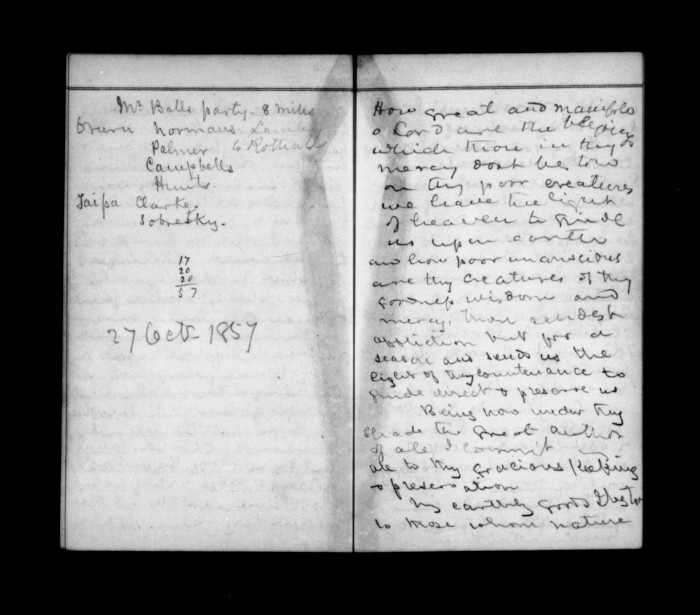 Mr Balls party. 8 miles
Oruru Normans
Palmer 6
Campbells
Hunts.
Taipa Clarke.
Sobresky.
17
20
20
57
27 Octr 1857
How great and manifold
o Lord are the blessings
which thou in thy
mercy dost bestow
on thy poor creatures
we have the light
of heaven to guide
us upon earth
and how poor unconscious
are thy creatures of thy
goodness wisdom and
mercy. Thou sendest
affliction but for a
season and sends us the
light of thy countenance to
guide direct & preserve us
Being now under thy
shade the great author
of all I commit my
all to thy gracious keeping
& preservation
My earthly goods I
to those whom nature